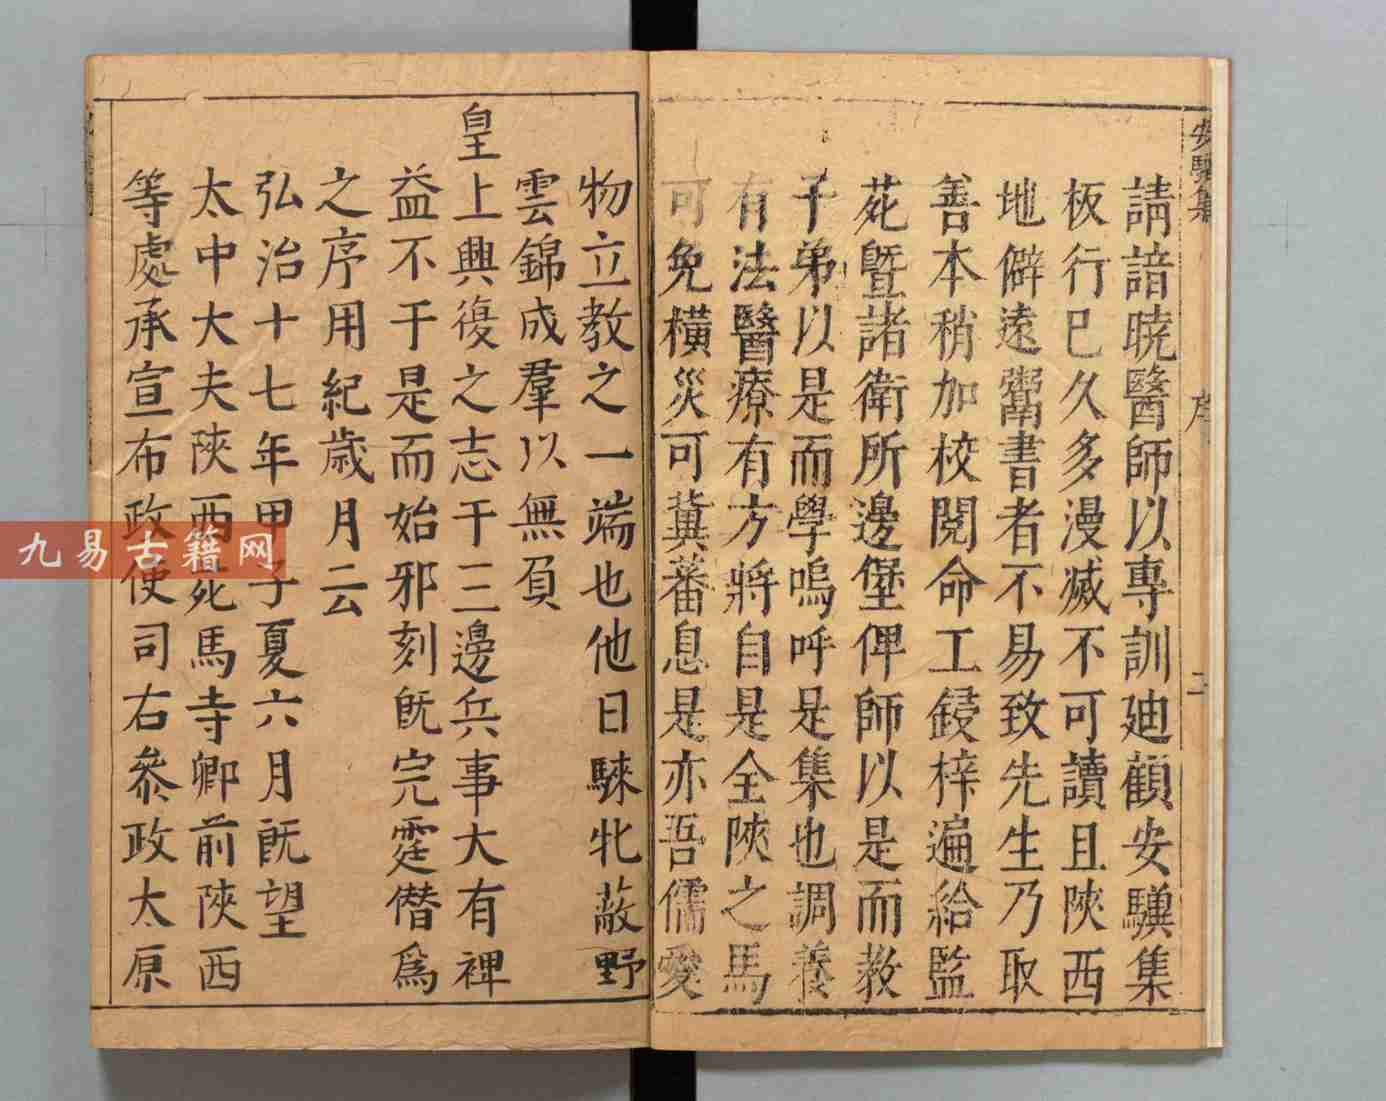 安驥集
序
二
請諳曉醫師以專訓廸顧安驥集
板行已久多漫滅不可讀且陜西
地僻遠鬻書者不易致先生乃取
善本稍加校閱命工鋟梓遍給監
苑曁諸衛所邊堡俾師以是而教
子弟以是而學嗚呼是集也調養
有法醫療有方將自是全陜之馬
可免橫災可冀蕃息是亦吾儒愛
物立教之一端也他日騋牝蔽野
雲錦成羣以無負
皇上興復之志于三邊兵事大有裨
益不于是而始邪刻旣完霆僭爲
之序用紀歲月云
弘治十七年甲子夏六月旣望
太中大夫陜西苑馬寺卿前陜西
等處承宣布政使司右叅政太原
九易古籍网